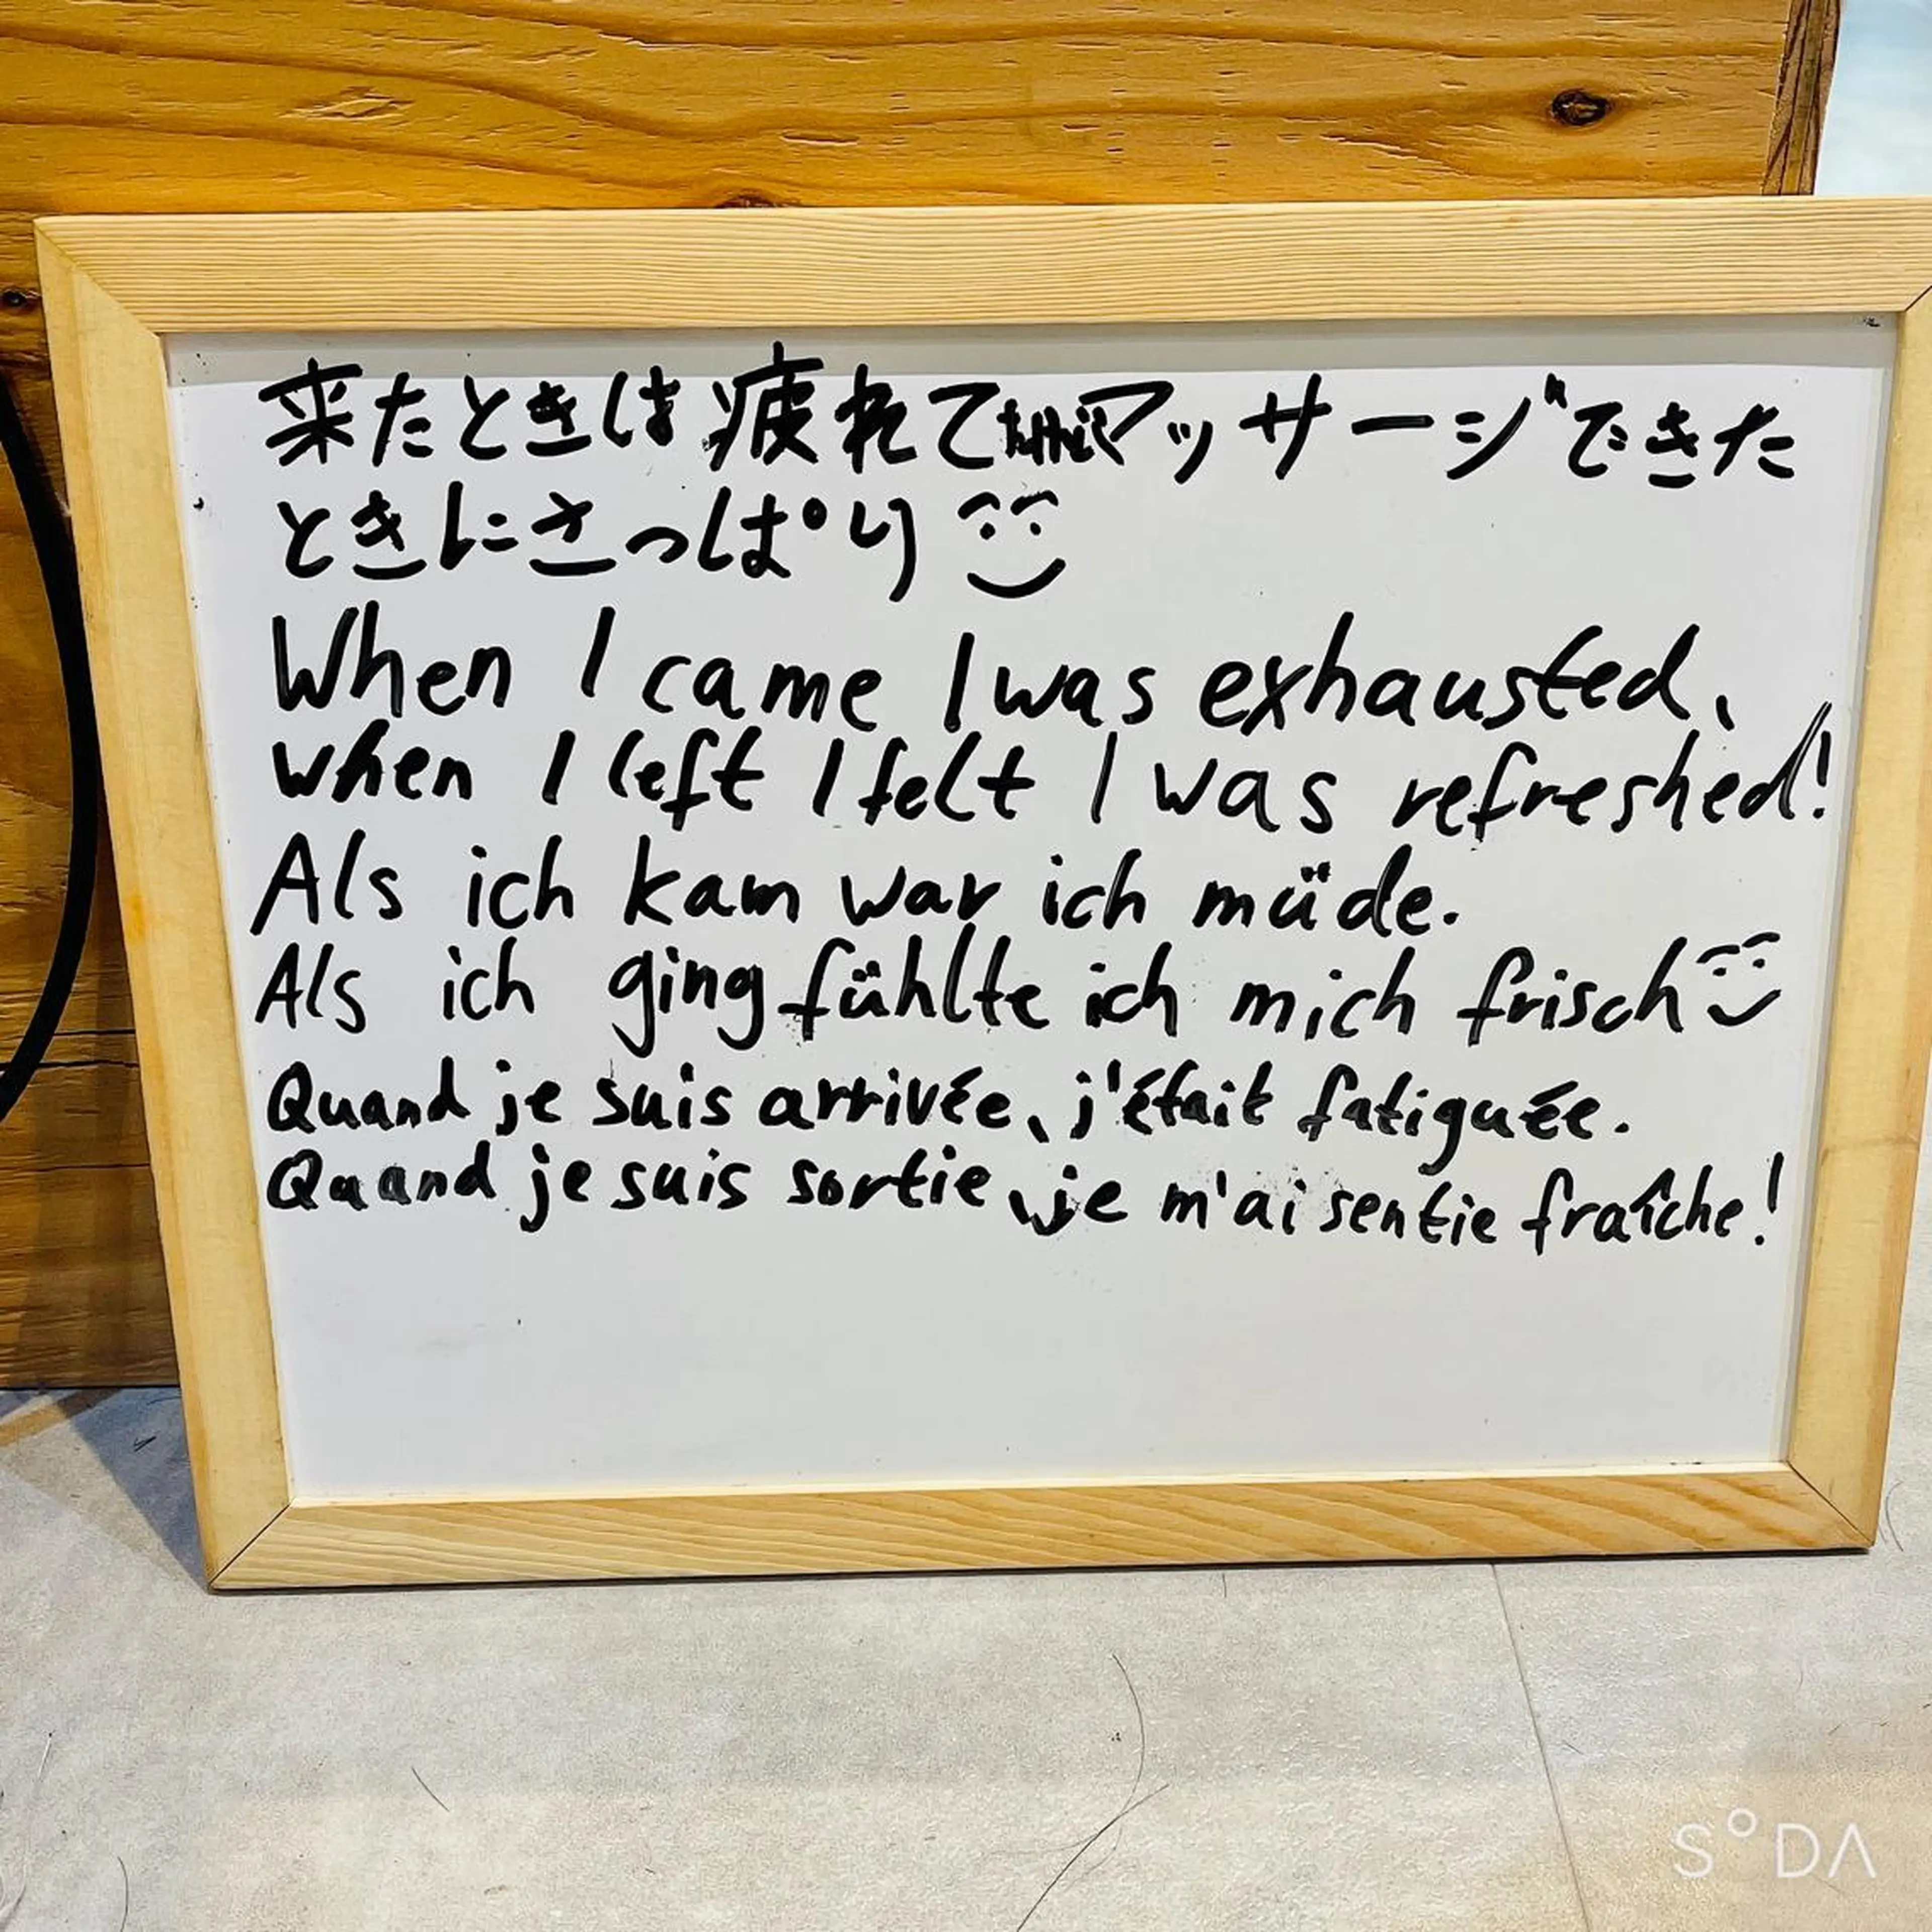 来たときは疲れてマッサージできた
ときにさっぱり
When I came I was exhausted、
when I left I felt I was refreshed!
Als ich kam war ich müde.
Als ich ging fühlte ich mich frisch
Quand je suis arrivée、j'était fatiguée.
Quand je suis sortie、je m'ai sentie fraîche!
SODA